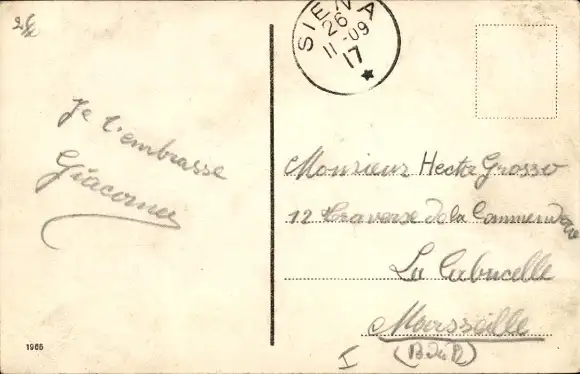 SIENA
26
11-09
17
Je t'embrasse
Giacomo
Monsieur Hector Grosso
12 traverse de la Commanderie
La Cabucelle
Marseille
(B.du R)
I
1966